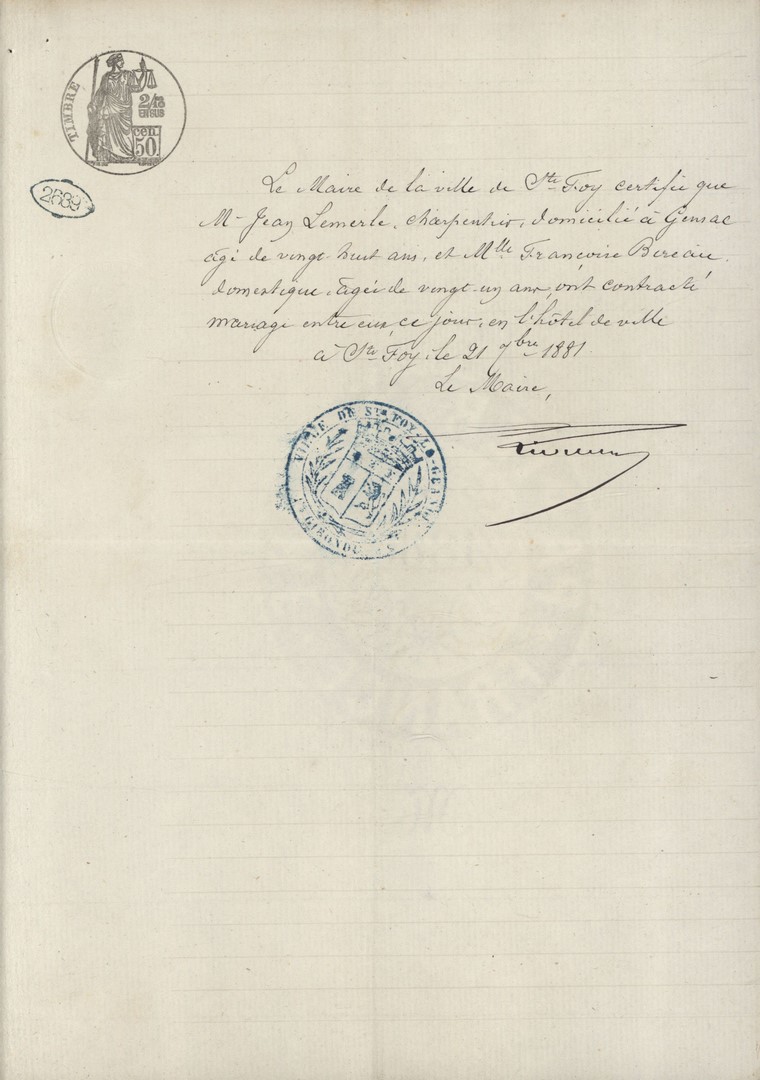 TIMBRE
2/10
EN SUS
cen.
50.
2689
Le Maire de la ville de Ste Foy certifie que
M. Jean Lemerle, charpentier, domicilié à Gensac
âgé de vingt-huit ans, et Mlle Françoise Bireau,
domestique, âgée de vingt-un ans, ont contracté
mariage entre eux, ce jour, en l'hôtel de ville
à Ste Foy, le 21 9bre 1881.
Le Maire,
VILLE DE STE FOY-LA-GRANDE
GIRONDE